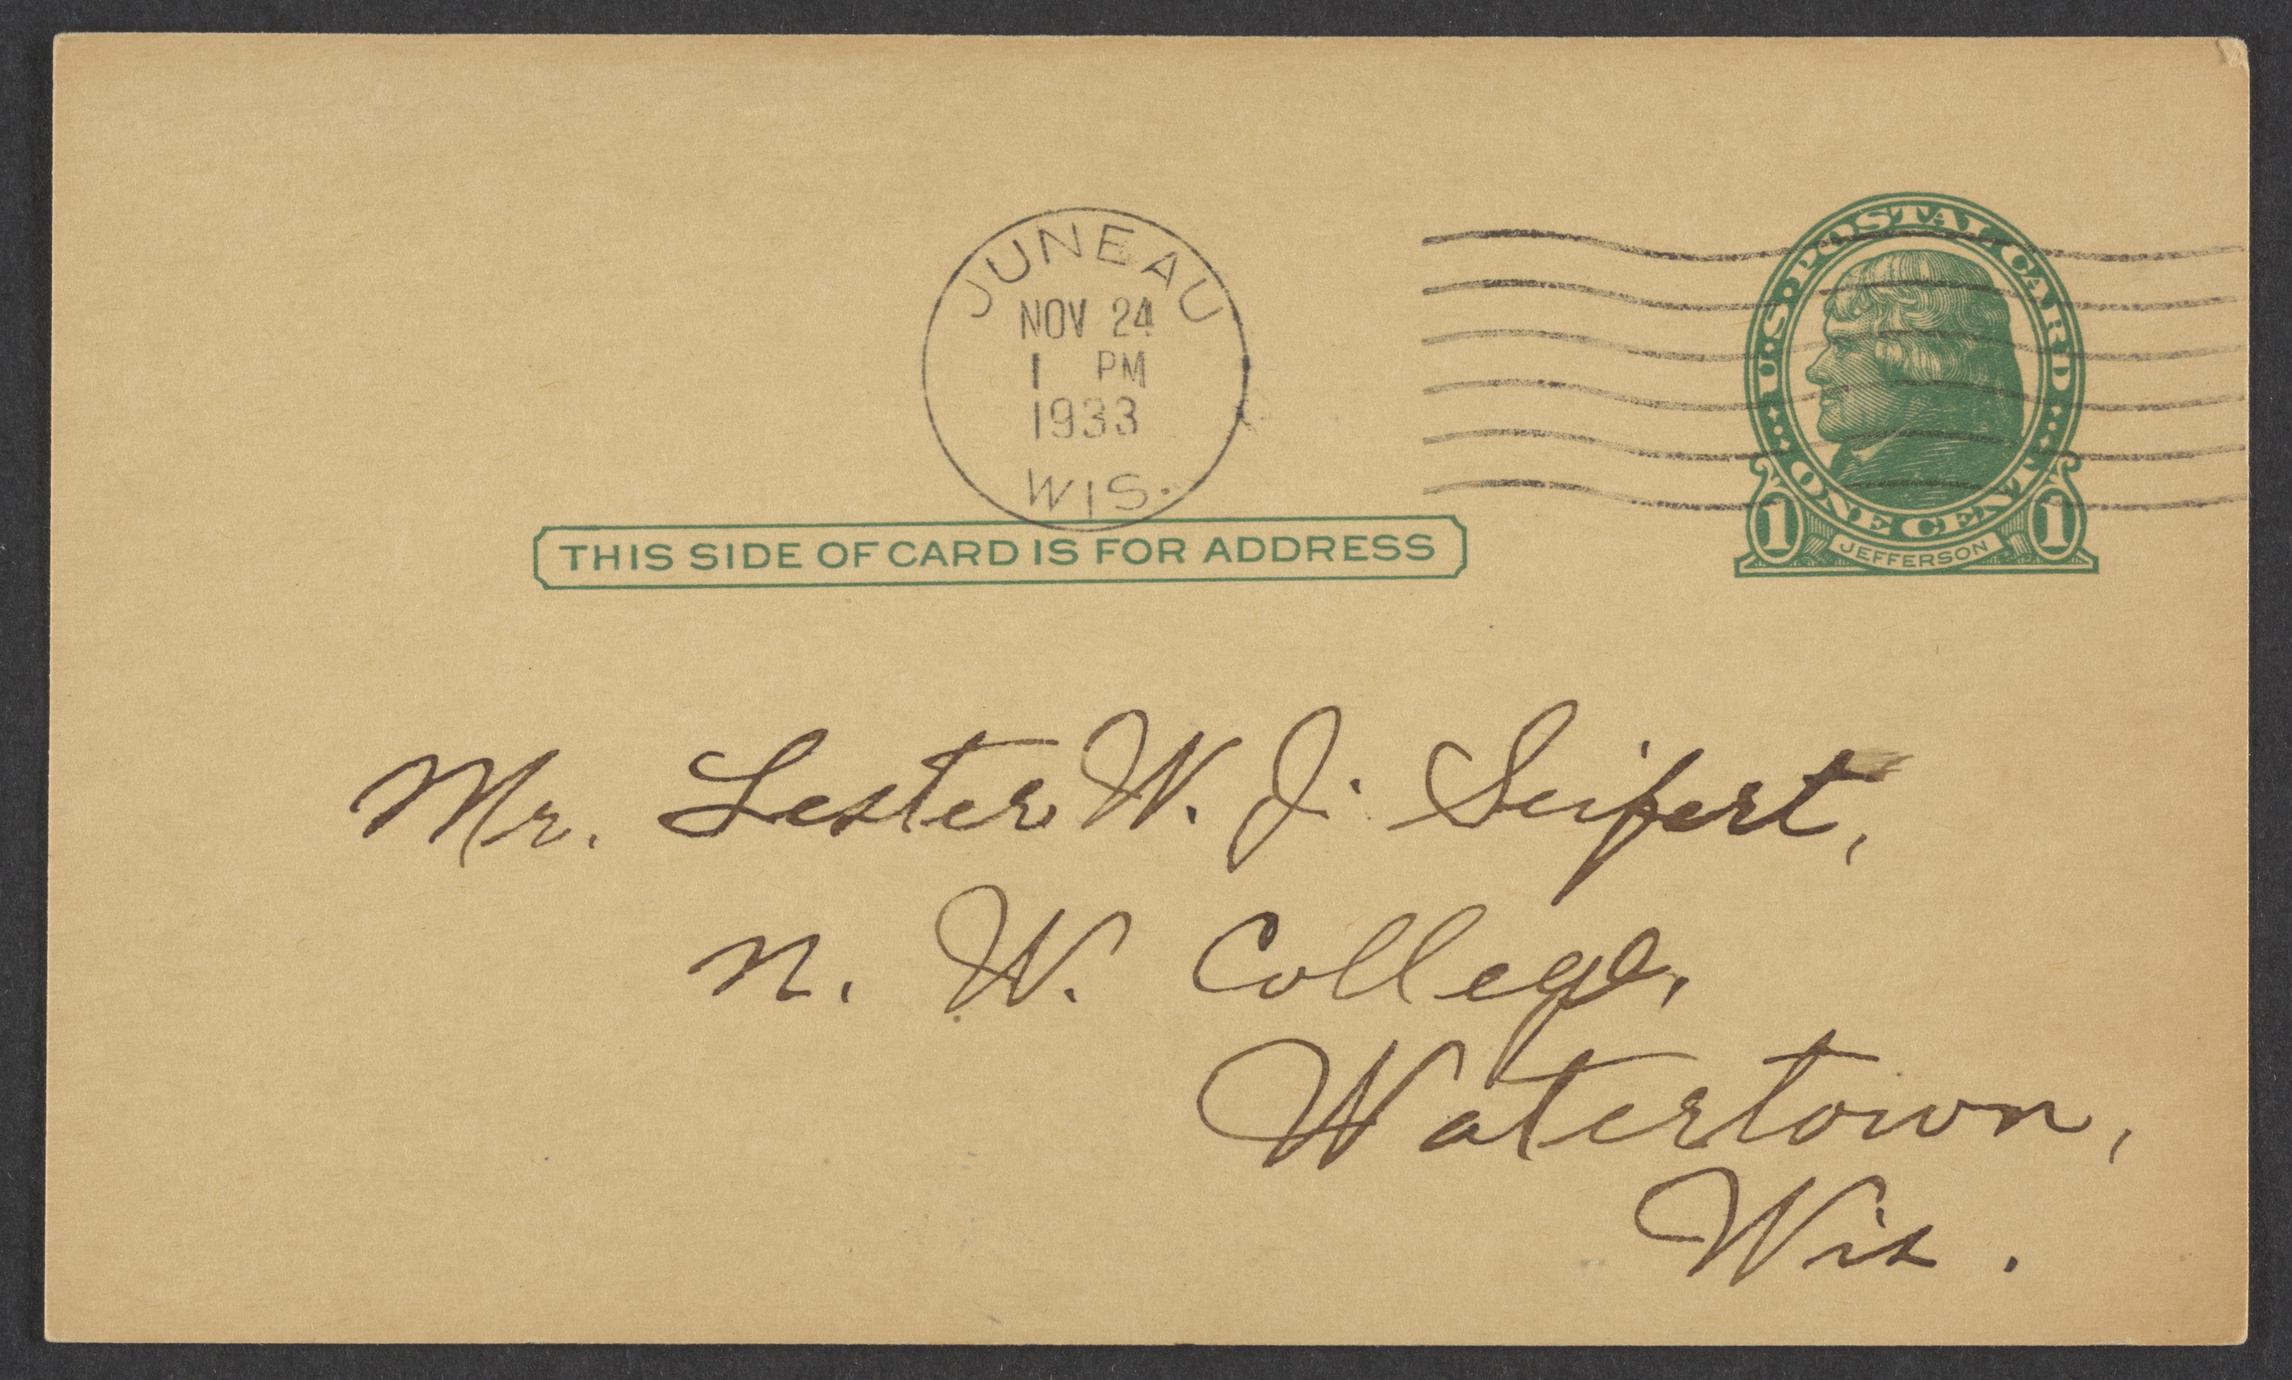 JUNEAU
NOV 24
1 PM
1933
WIS.
U.S. POSTAL CARD
ONE CENT
1 JEFFERSON 1
THIS SIDE OF CARD IS FOR ADDRESS
Mr. Lester W. J. Seifert,
N. W. College,
Watertown,
Wis.